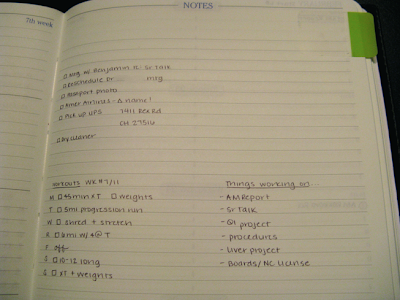 NOTES
7th week
□ Mtg w/ Benjamin R: Sr Talk
□ Reschedule Dr... mtg
□ Passport photo
□ Amer Airlines - Δ name!
□ Pick up UPS 1411 Rex Rd
CH 27516
□ Dry cleaner
Workouts WK # 7/11
M □ 45min XT □ weights
T □ 5mi progression run
W □ shred + stretch
R □ 6mi w/ 4@T
F off
S □ 10-12 long
S □ XT + weights
Things working on...
- AM Report
- Sr Talk
- QI project
- procedures
- Liver project
- Boards/NC License